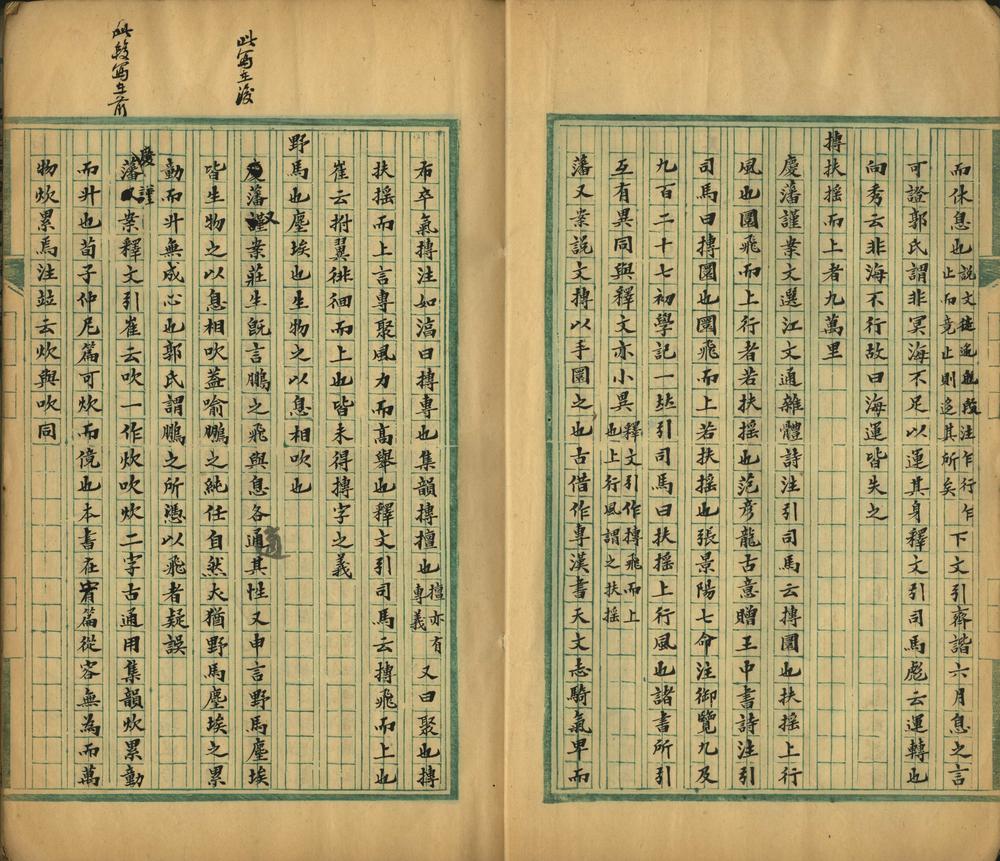 而休息也說文徙迻也段注乍行乍止而竟止則迻其所矣下文引齊諧六月息之言
可證郭氏謂非冥海不足以運其身釋文引司馬彪云運轉也
向秀云非海不行故曰海運皆失之
摶扶搖而上者九萬里
慶藩謹案文選江文通雜體詩注引司馬云摶圜也扶搖上行
風也圜飛而上行者若扶搖也范彥龍古意贈王中書詩注引
司馬曰摶圜也圜飛而上若扶搖也張景陽七命注御覽九及
九百二十七初學記一竝引司馬曰扶搖上行風也諸書所引
互有異同與釋文亦小異釋文引作摶飛而上也上行風謂之扶搖
藩又案說文摶以手圜之也古借作專漢書天文志騎氣卑而
布卒氣摶注如湻曰摶專也集韻摶擅也擅亦有專義又曰聚也摶
扶搖而上言專聚風力而高舉也釋文引司馬云摶飛而上也
崔云拊翼徘徊而上也皆未得摶字之義
野馬也塵埃也生物之以息相吹也
此寫在後
慶藩又謹案莊生既言鵬之飛與息各適其性又申言野馬塵埃
皆生物之以息相吹蓋喻鵬之純任自然夫猶野馬塵埃之累
動而升無成心也郭氏謂鵬之所憑以飛者疑誤
此段寫在前
慶藩謹案釋文引崔云吹一作炊吹炊二字古通用集韻炊累動
而升也荀子仲尼篇可炊而傹也本書在宥篇從容無為而萬
物炊累焉注竝云炊與吹同